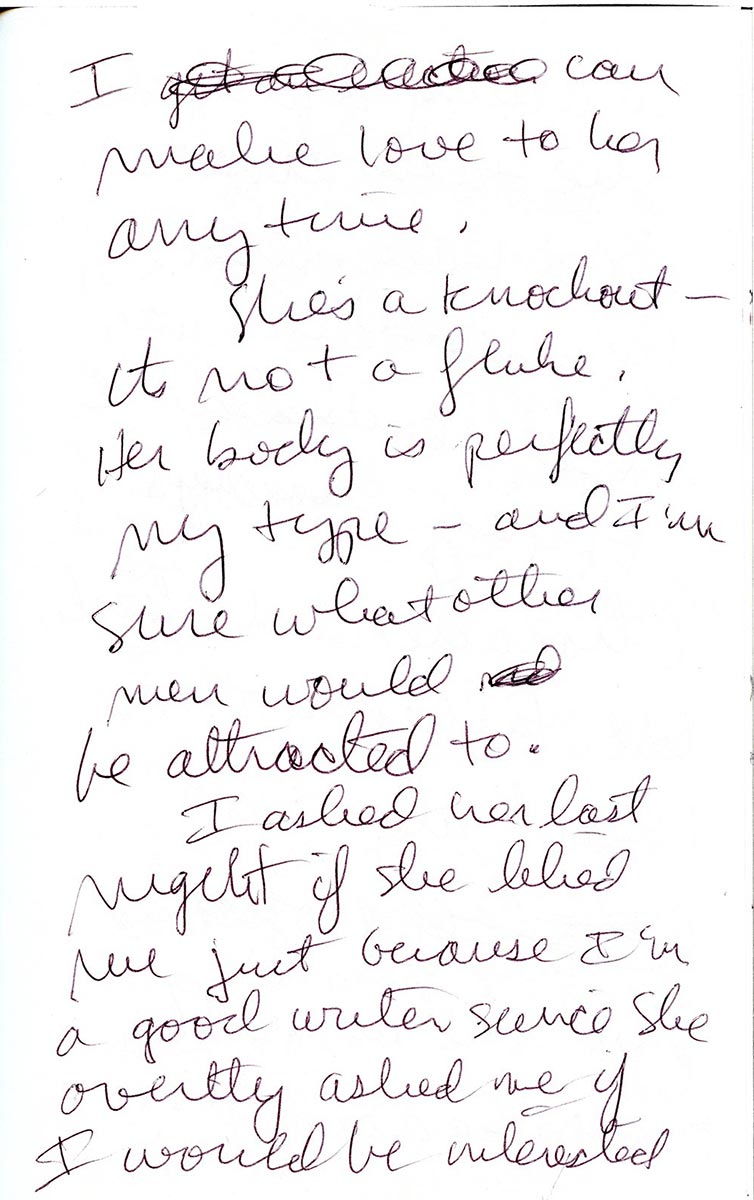 I can
make love to her
anytime.
She's a knockout —
its not a fluke.
Her body is perfectly
my type — and I'm
sure what other
men would
be attracted to.
I asked her last
night if she liked
me just because I'm
a good writer since she
overtly asked me if
I would be interested